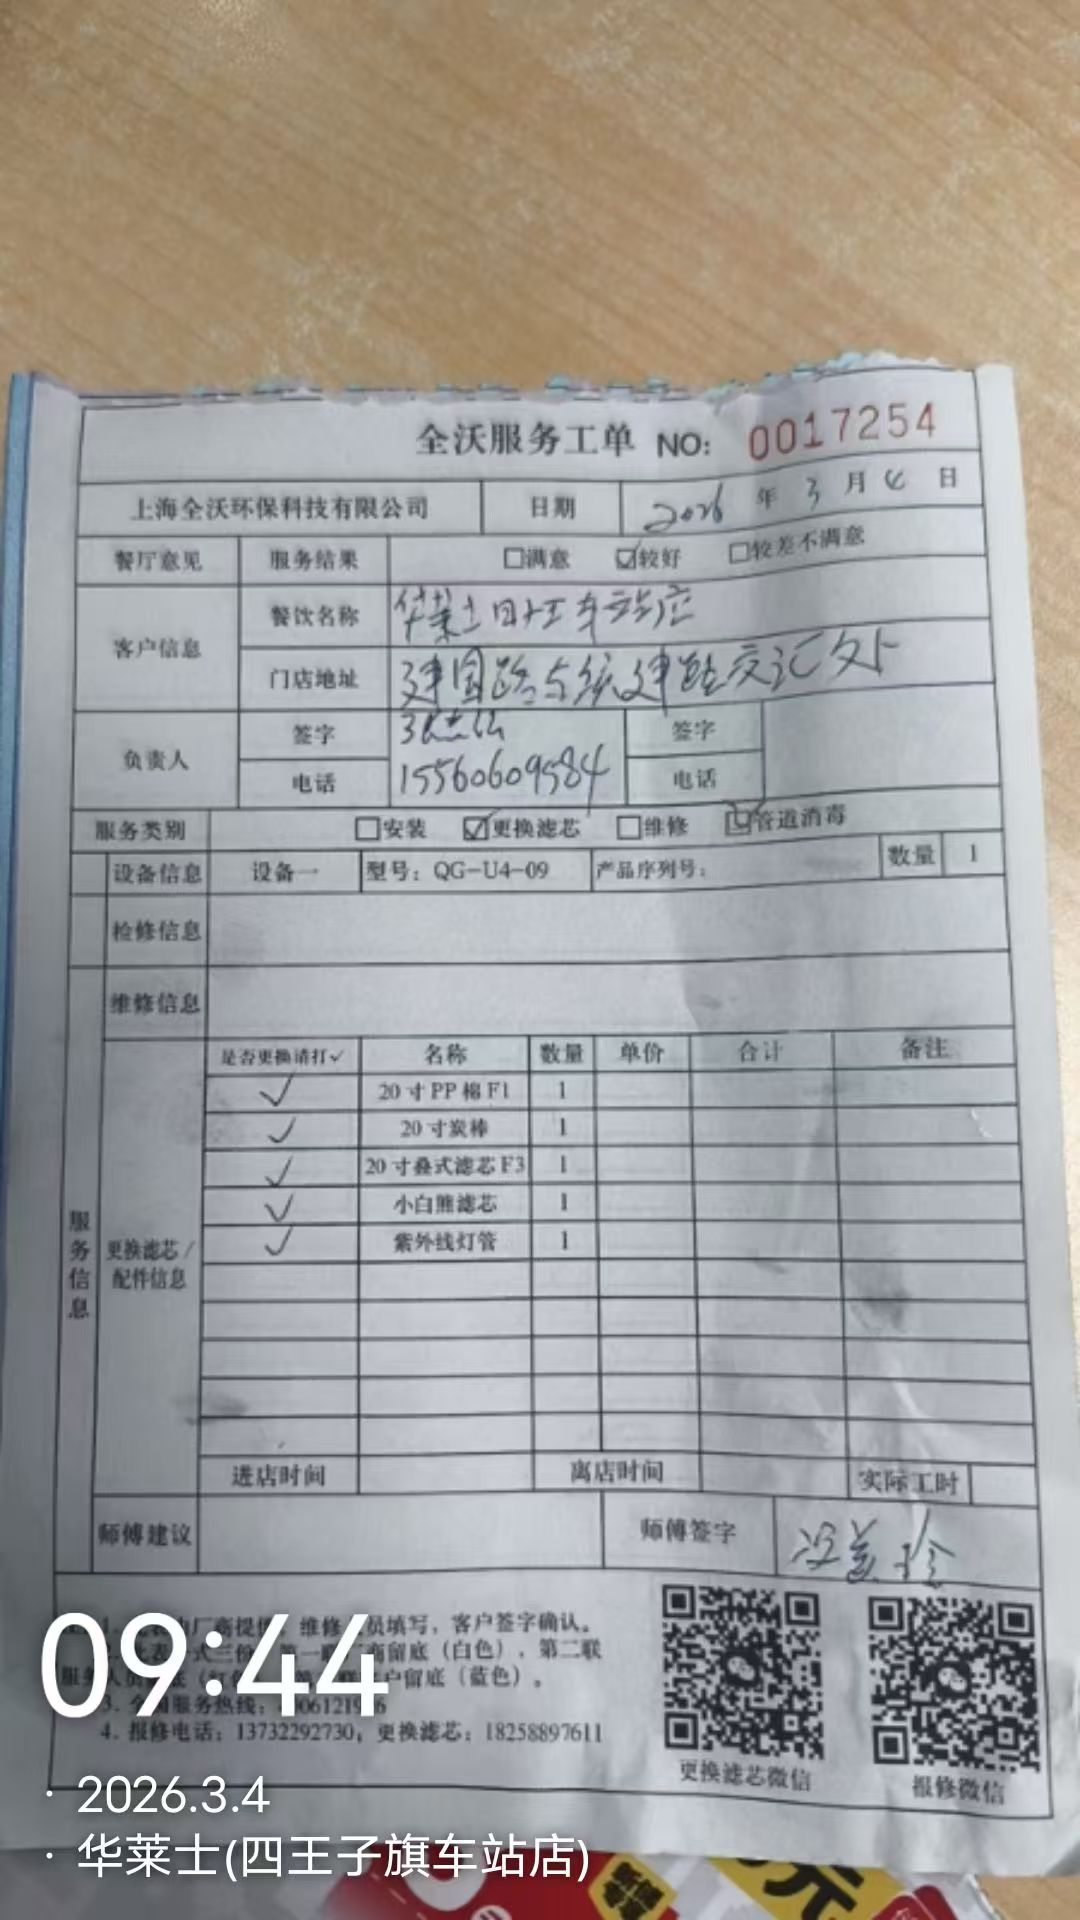 全沃服务工单 NO: 0017254
上海全沃环保科技有限公司 日期 2026 年 3 月 4 日
餐厅意见 服务结果 □满意 ☑较好 □较差不满意
客户信息 餐饮名称 华莱士四王车站店
门店地址 建国路与统建路交汇处
负责人 签字 签字
电话 15560609584 电话
服务类别 □安装 ☑更换滤芯 □维修 ☑管道消毒
设备信息 设备一 型号：QG-U4-09 产品序列号： 数量 1
检修信息
维修信息
服务信息
更换滤芯/
配件信息
是否更换请打✓ 名称 数量 单价 合计 备注
✓ 20寸PP棉F1 1
✓ 20寸炭棒 1
✓ 20寸叠式滤芯F3 1
✓ 小白熊滤芯 1
✓ 紫外线灯管 1
进店时间 离店时间 实际工时
师傅建议 师傅签字
1. 厂商提供 维修 员填写，客户签字确认。
2. 表 式三份 第一联 商留底（白色），第二联
服务人员 底（红色 户留底（蓝色）。
3. 全国服务热线：
4. 报修电话：13732292730，更换滤芯：18258897611
更换滤芯微信 报修微信
09:44
· 2026.3.4
· 华莱士(四王子旗车站店)
元